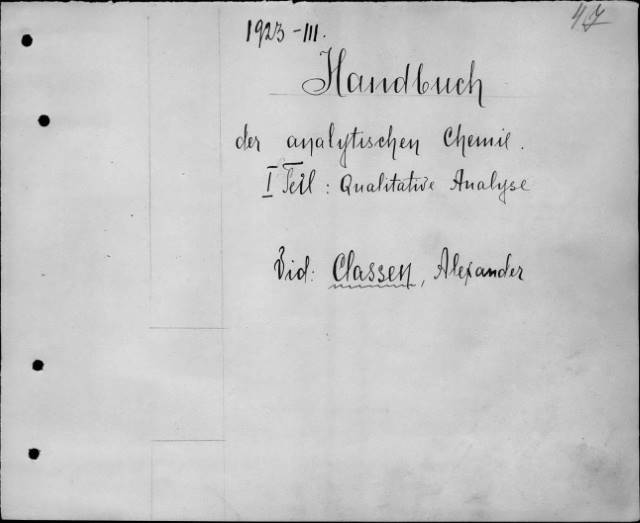 47
1923-III.
Handbuch
der analytischen Chemie.
I Teil: Qualitative Analyse
Vid: Classen, Alexander